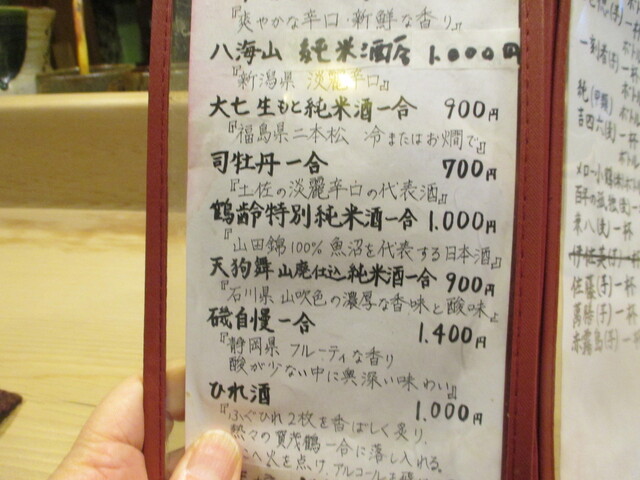 『爽やかな辛口・新鮮な香り』
八海山 純米酒 1.000円
『新潟県 淡麗辛口』
大七 生もと純米酒一合 900円
『福島県二本松 冷またはお燗で』
司牡丹一合 700円
『土佐の淡麗辛口の代表酒』
鶴齢特別純米酒一合 1.000円
『山田錦100% 魚沼を代表する日本酒』
天狗舞 山廃仕込 純米酒一合 900円
『石川県 山吹色の濃厚な香味と酸味』
磯自慢一合 1.400円
『静岡県 フルーティな香り
酸が少ない中に奥深い味わい』
ひれ酒 1.000円
『ふぐひれ2枚を香ばしく炙り、
熱々の賀茂鶴一合に落し入れる。
へ火を点け、アルコールを
一刻者(芋)一杯
純(甲類)
吉四六(麦)一杯
メロー小鶴
百年の孤独(麦)一
米八(麦)一杯
伊佐美(芋)一杯
佐藤(芋)一杯
萬膳(芋)一杯
赤霧島(芋)一杯